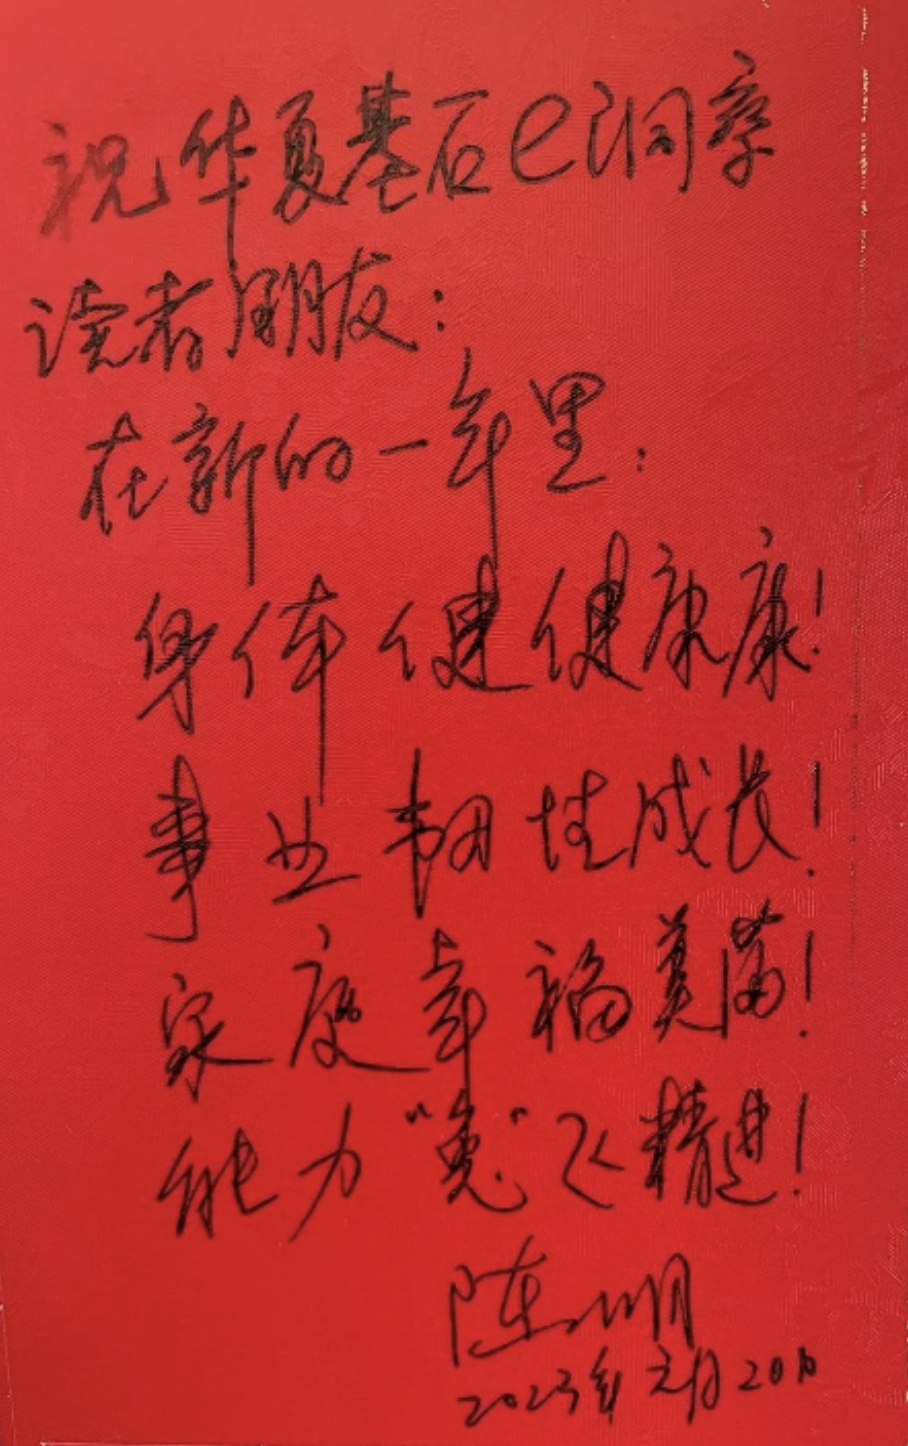 祝华夏基石e洞察
读者朋友：
在新的一年里：
身体健健康康！
事业韧性成长！
家庭幸福美满！
能力“兔”飞精进！
陈明
2023年元月20日